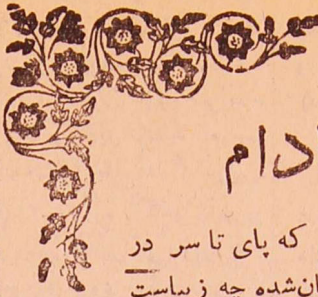 دام
که پای تا سر در
ان‌شده چه زیباست